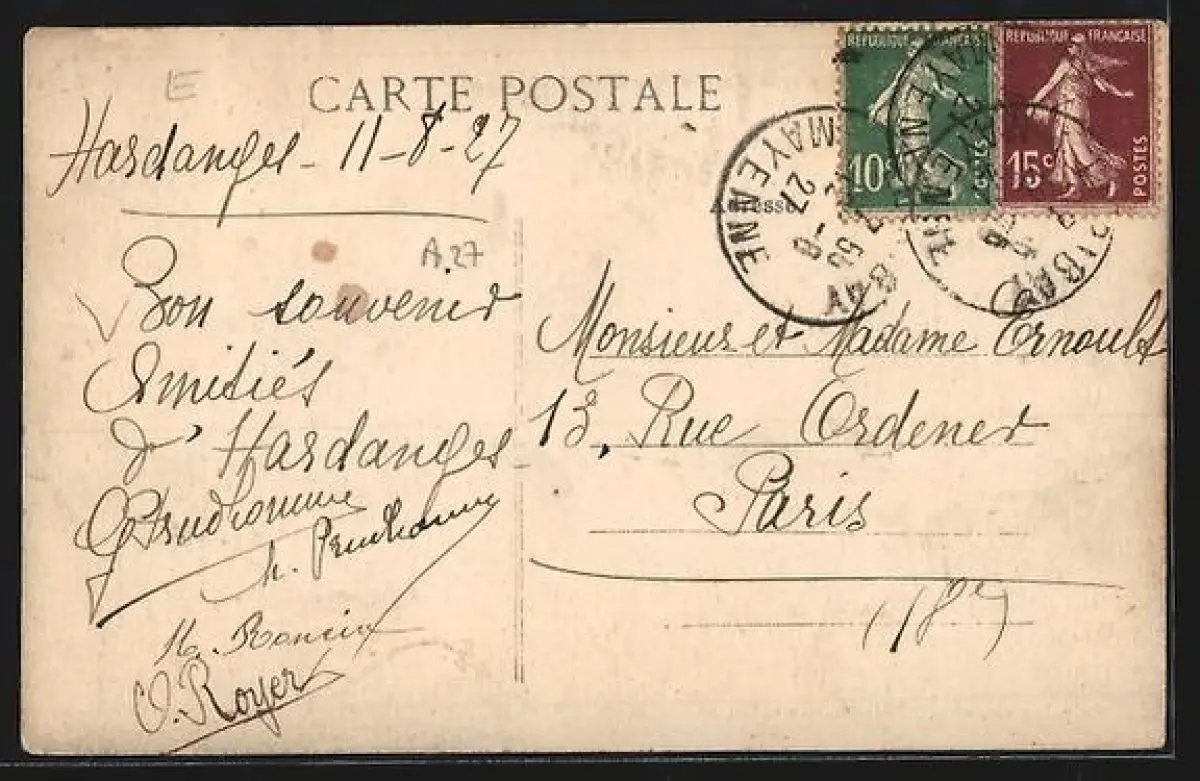 E
CARTE POSTALE
Hardanges - 11-8-27
A27
Bon souvenir
Amitiés
d'Hardanges
Prudhomme
h. Prudhomme
O. Royer
REPUBLIQUE FRANÇAISE
10c
POSTES
REPUBLIQUE FRANÇAISE
15c
POSTES
MAYENNE
27
Adresse
Monsieur et Madame Ernoult
13, Rue Ordener
Paris
(18e)